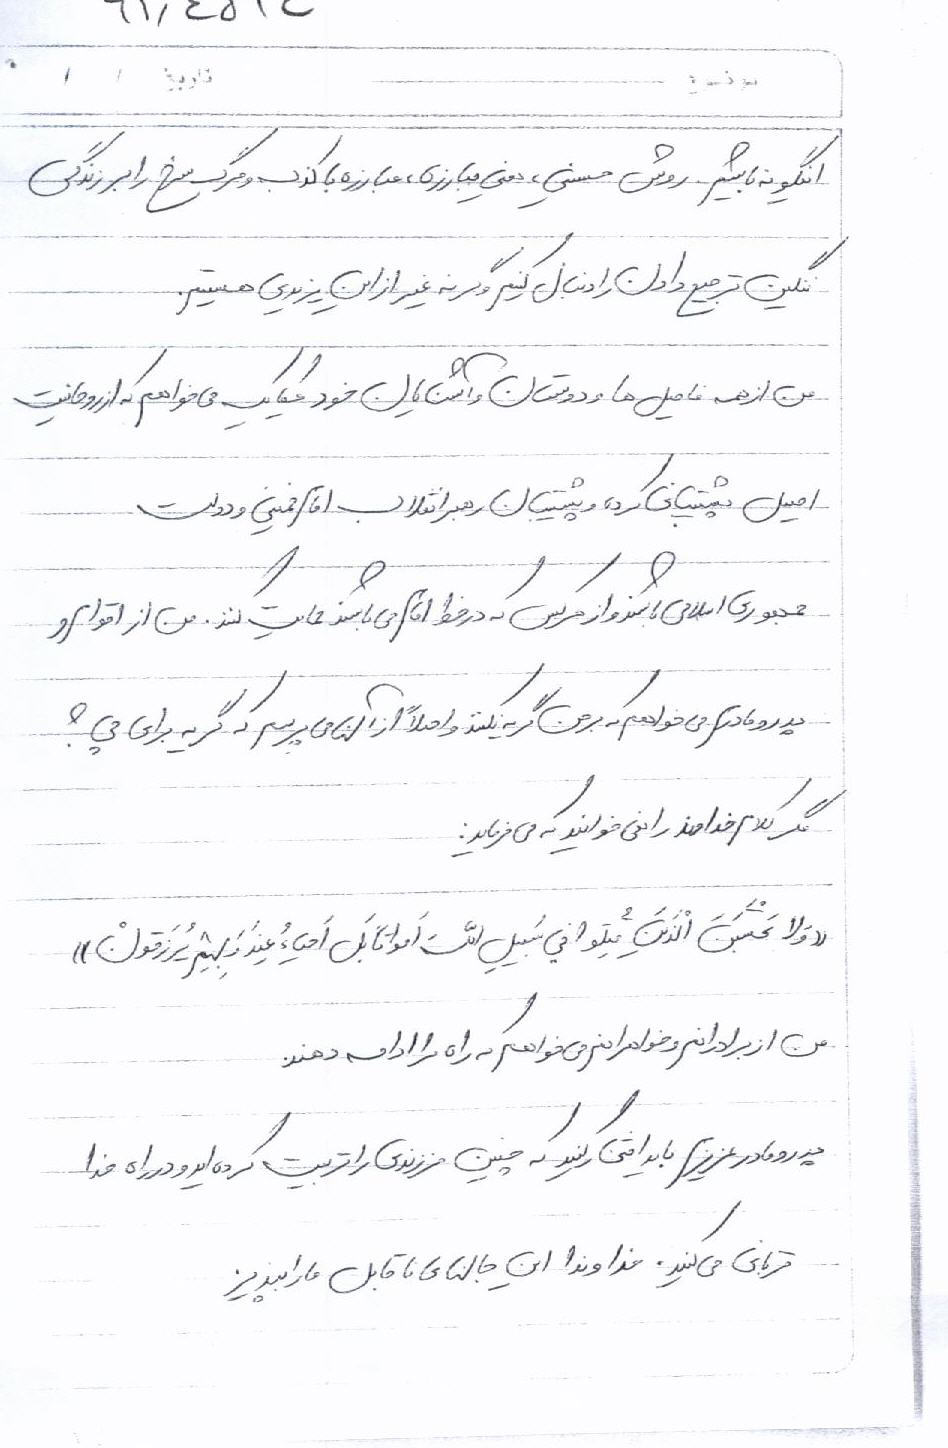 موضوع تاریخ / /
اینگونه باشیم. روش حسینی، یعنی مبارزه، مبارزه با کذب و مرگ سرخ را بر زندگی
ننگین ترجیح دادن را دنبال کنیم وگرنه غیر از این یزیدی هستیم.
من از همه فامیل ها و دوستان و آشنایان خود یکایک می خواهم که از روحانیت
اصیل پشتیبانی کرده و پشتیبان رهبر انقلاب امام خمینی و دولت
جمهوری اسلامی باشند و از هرکس که در خط امام می باشند حمایت کنند. من از اقوام و
پدر و مادرم می خواهم که بر من گریه نکنند و اصلاً از آنان می پرسم که گریه برای چی؟
مگر کلام خداوند را نمی خوانید که می فرماید:
«وَلا تَحْسَبَنَ الَّذینَ قُتِلوا في سَبیلِ اللهِ اَمواتا بَل اَحیاءٌ عِندَ رَبِهِم یُرزَقونْ»
من از برادرانم و خواهرانم می خواهم که راه مرا ادامه دهند.
پدر و مادر عزیزم باید افتخار کنید که چنین فرزندی را تربیت کرده اید و در راه خدا
قربانی می کنید. خداوندا این جانهای ناقابل ما را بپذیر